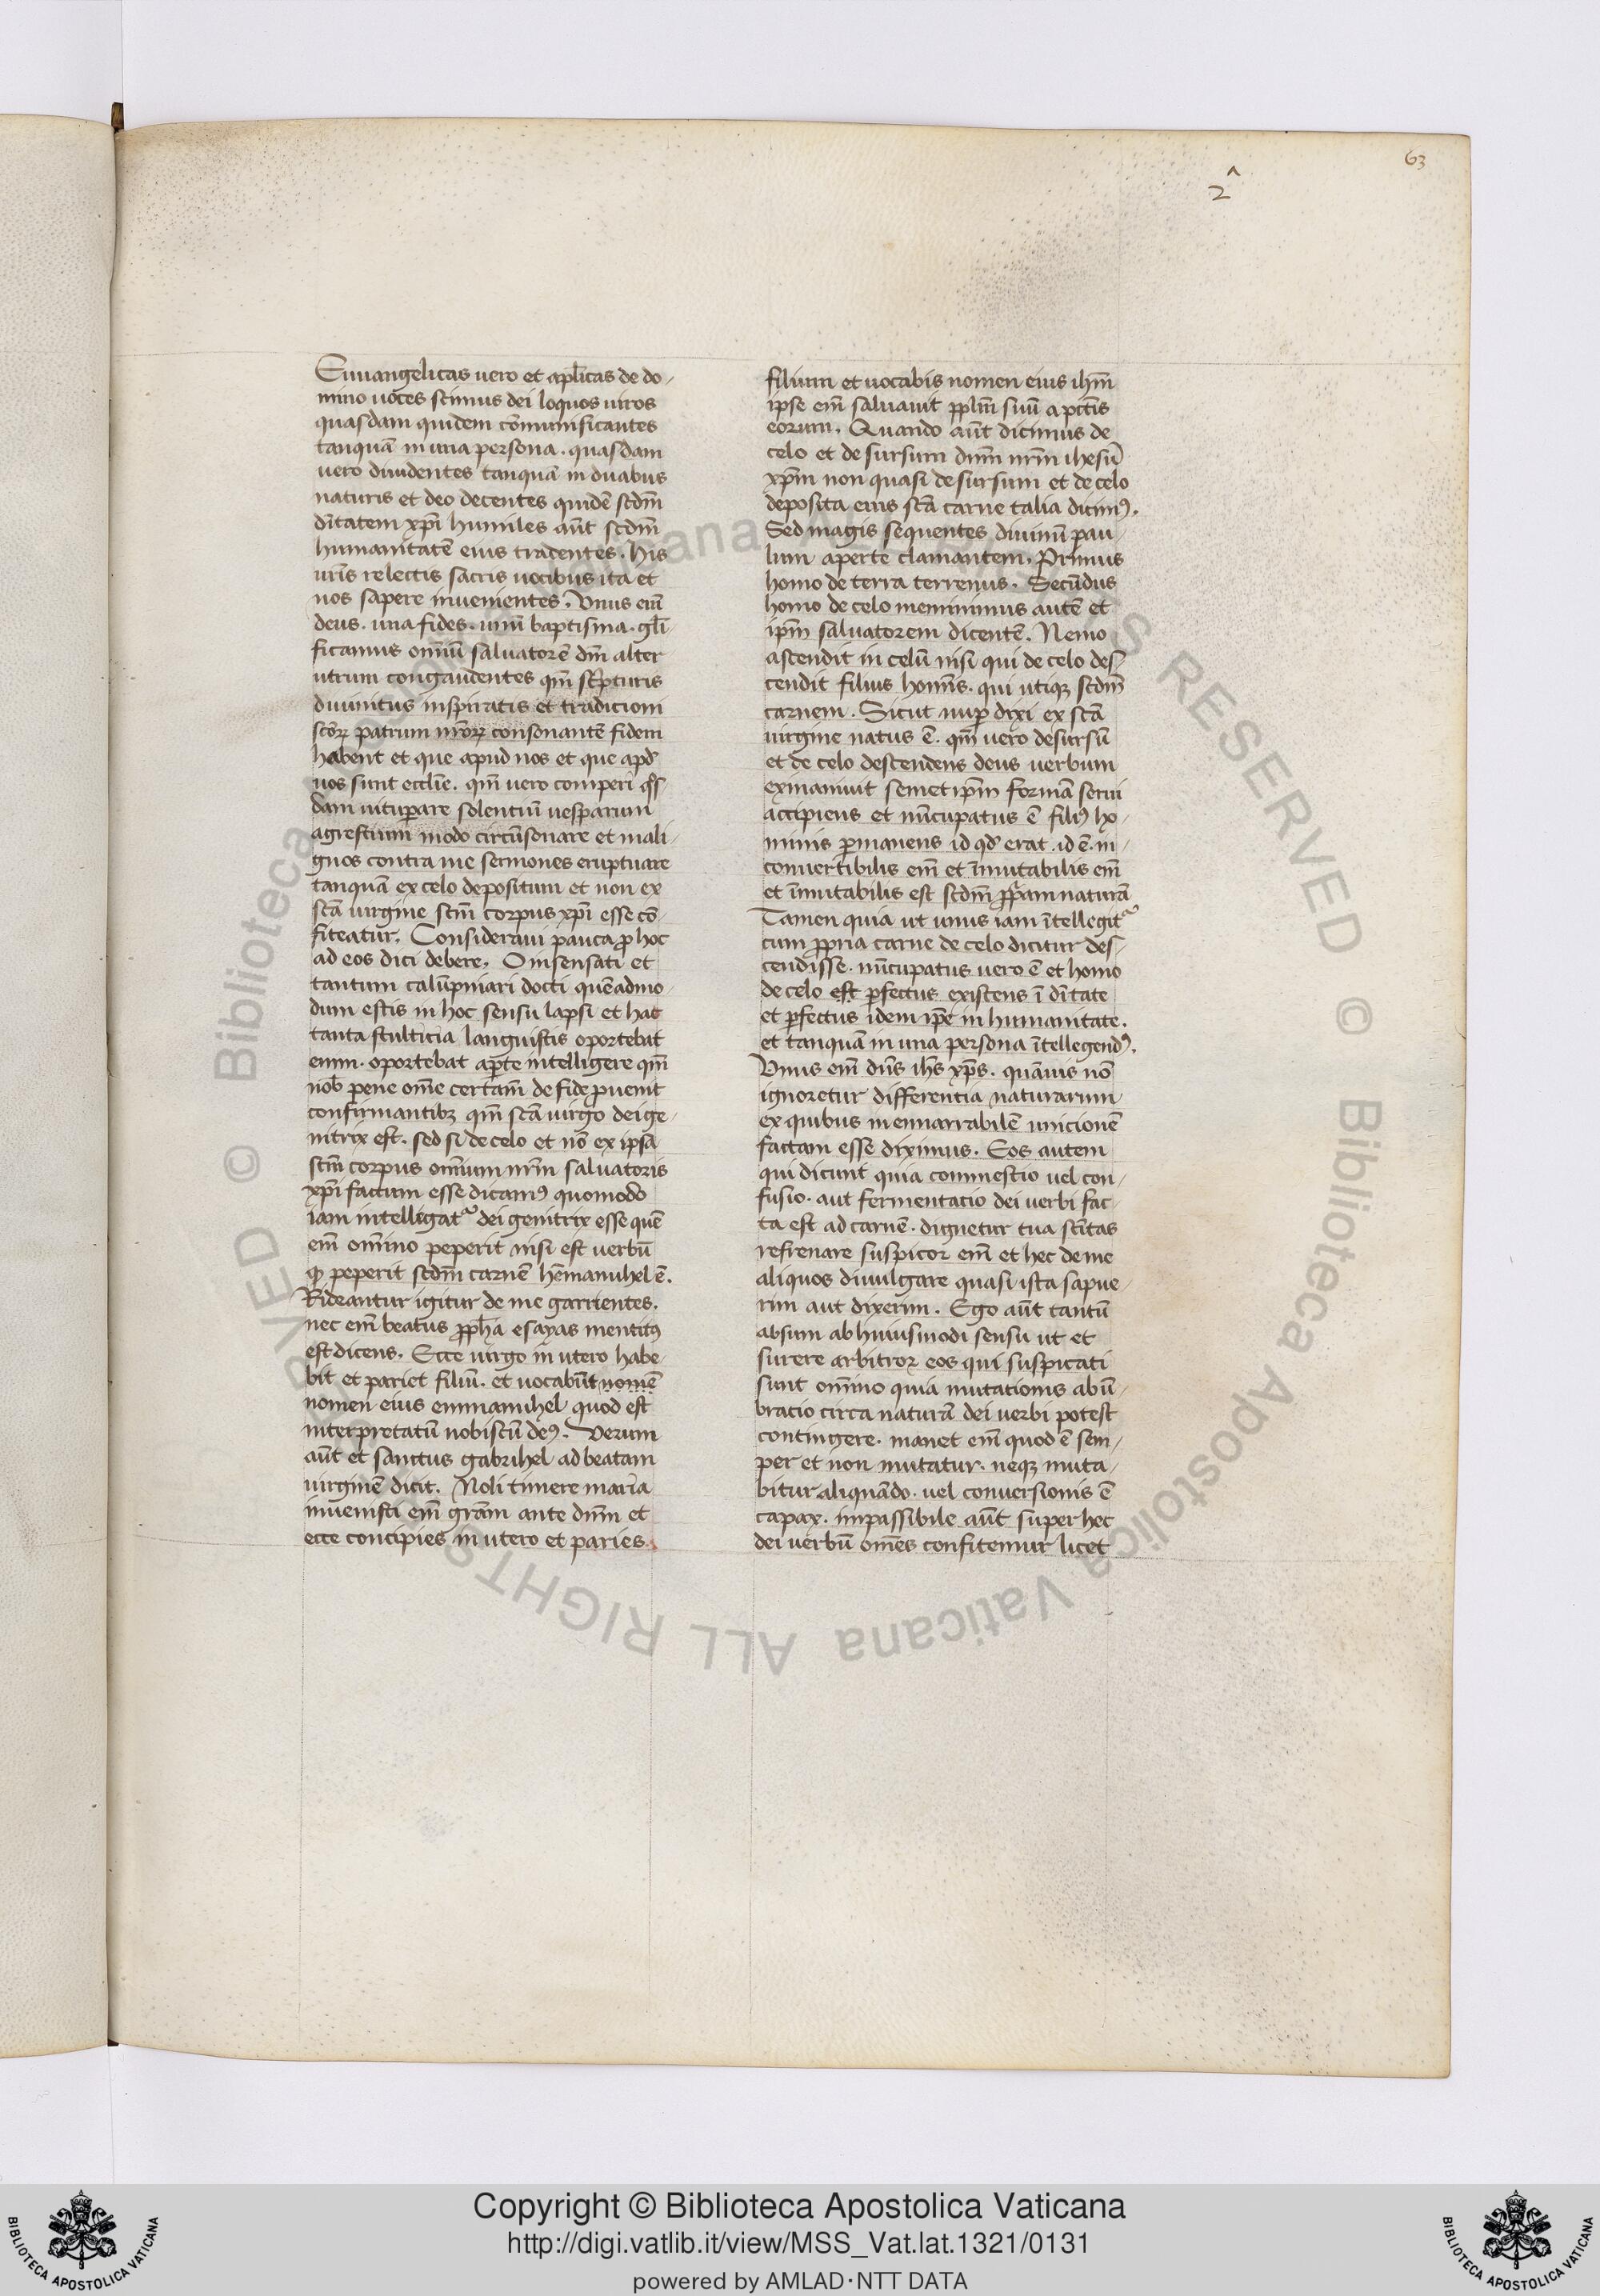 63
2^
Euuangelicas uero et apl̄icas de do-
mino uoces scimus dei loquos uiros
quasdam quidem cōmunificantes
tanquā in una persona. quasdam
uero diuidentes tanquā in duabus
naturis et deo decentes quidē scdm̄
dītatem xp̄i humiles aūt scdm̄
humanitatē eius tradentes. His
urīs relectis sacris uocibus ita et
nos sapere inuenientes. Vnus em̄
deus. una fides. unū baptisma. gl̄i-
ficamus omīū saluatorē dm̄ alter
utrum congaudentes qm̄ scpturis
diuinitus inspiratis et tradicioni
scōꝝ patrum nrōꝝ consonantē fidem
habent et que apud nos et que apd̄
uos sunt ecclīe. qm̄ uero comperi qͦs-
dam uitupare solentiū uesparum
agrestium modo circūsonare et mali-
gnos contra me sermones eruptuare
tanquā ex celo depositum et non ex
scā uirgine scm̄ corpus xp̄i esse cō-
fiteatur. Consideraui pauca ꝓ hoc
ad eos dici debere. O insensati et
tantum calūpniari docti quēadmo-
dum estis in hoc sensu lapsi et hac
tanta stulticia languistis oportebat
enim. oportebat apte intelligere qm̄
nob̄ pene om̄e certam̄ de fide puenit
confirmantibꝫ qm̄ scā uirgo dei ge-
nitrix est. sed si de celo et nō ex ipsa
scm̄ corpus omīum nrm̄ saluatoris
xp̄i factum esse dicamꝰ quomodo
iam intelligat᷑ dei genitrix esse quē
em̄ omīno peperit nisi est uerbū
qͦ peperit scdm̄ carnē hēmanuhel ē.
Rideantur igitur de me garrientes.
nec em̄ beatus ꝓph̄a esayas mentitꝰ
est dicens. Ecce uirgo in utero habe-
bit et pariet filiū. et uocabūt nomē
nomen eius emmanuhel quod est
interpretatū nobiscū deꝰ. Verum
aūt et sanctus gabrihel ad beatam
uirginē dicit. Noli timere maria
inuenisti em̄ grām ante dnm̄ et
ecce concipies in utero et paries.
filium et uocabis nomen eius ihm̄
ipse em̄ saluauit pplm̄ suū a pctīs
eorum. Quando aūt dicimus de
celo et de sursum dnm̄ nrm̄ ihesū
xp̄m non quasi de sursum et de celo
deposita eius scā carne talia dicimꝰ.
Sed magis sequentes diuinū pau-
lum aperte clamantem. Primus
homo de terra terrenus. Secūdus
homo de celo meminimus autē et
ip̄m saluatorem dicentē. Nemo
ascendit in celū nisi qui de celo des-
cendit filius homīs. qui utiqꝫ scdm̄
carnem. Sicut nup dixi ex scā
uirgine natus ē. qm̄ uero desursū
et de celo descendens deus uerbum
exinaniuit semet ip̄m formā serui
accipiens et nūcupatus ē filiꝰ ho-
minis pmanens id qd̄ erat. id ē. in-
conuertibilis em̄ et īmutabilis em̄
et īmutabilis est scdm̄ ppam naturā
Tamen quia ut unus iam ītellegit᷑
cum ꝓpria carne de celo dicitur des-
cendisse. nūcupatus uero ē et homo
de celo est pfectus existens ī dītate
et pfectus idem ip̄e in humanitate.
et tanquā in una persona ītellegendꝰ.
Vnus em̄ dn̄s ih̄s xp̄s. quāuis nō
ignoretur differentia naturarum
ex quibus inennarrabilē unicionē
factam esse diximus. Eos autem
qui dicunt quia commestio uel con-
fusio. aut fermentacio dei uerbi fac-
ta est ad carnē. dignetur tua scītas
refrenare suspicor em̄ et hec de me
aliquos diuulgare quasi ista sapue-
rim aut dixerim. Ego aūt tantū
absum ab huiusmodi sensu ut et
furere arbitror eos qui suspicati
sunt omīno quia mutationis abū-
bracio circa naturā dei uerbi potest
contingere. manet em̄ quod ē sem-
per et non mutatur. neqꝫ muta-
bitur aliquādo. uel conuersionis ē
capax. impassibile aūt super hec
dei uerbū om̄es confitemur licet
© Biblioteca Apostolica Vaticana ALL RIGHTS RESERVED © Biblioteca Apostolica Vaticana ALL RIGHTS RESERVED
Copyright © Biblioteca Apostolica Vaticana
http://digi.vatlib.it/view/MSS_Vat.lat.1321/0131
powered by AMLAD·NTT DATA
BIBLIOTECA APOSTOLICA VATICANA
BIBLIOTECA APOSTOLICA VATICANA